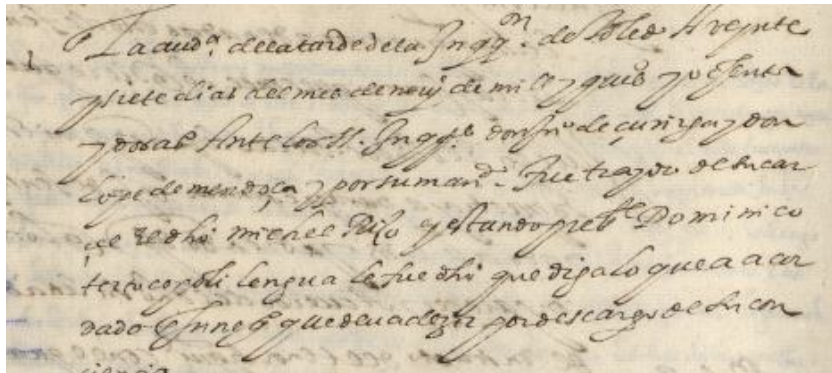 En la aud.ª de la tarde de la Inqq.on de Toledo A veynte
y siete dias del mes de nou.e de mil y quis y ochenta
y dos as Ante los ss. Inqq.s don fr.co de çuñiga y don
lope de mendoça y por su mand.o fue traydo de su car
cel el dho michel Rizo y estando preste Dominico
terzocopoli lengua le fue dho que diga lo que a acor
dado en neg.o que deua dezir por descargo de su con
ciencia